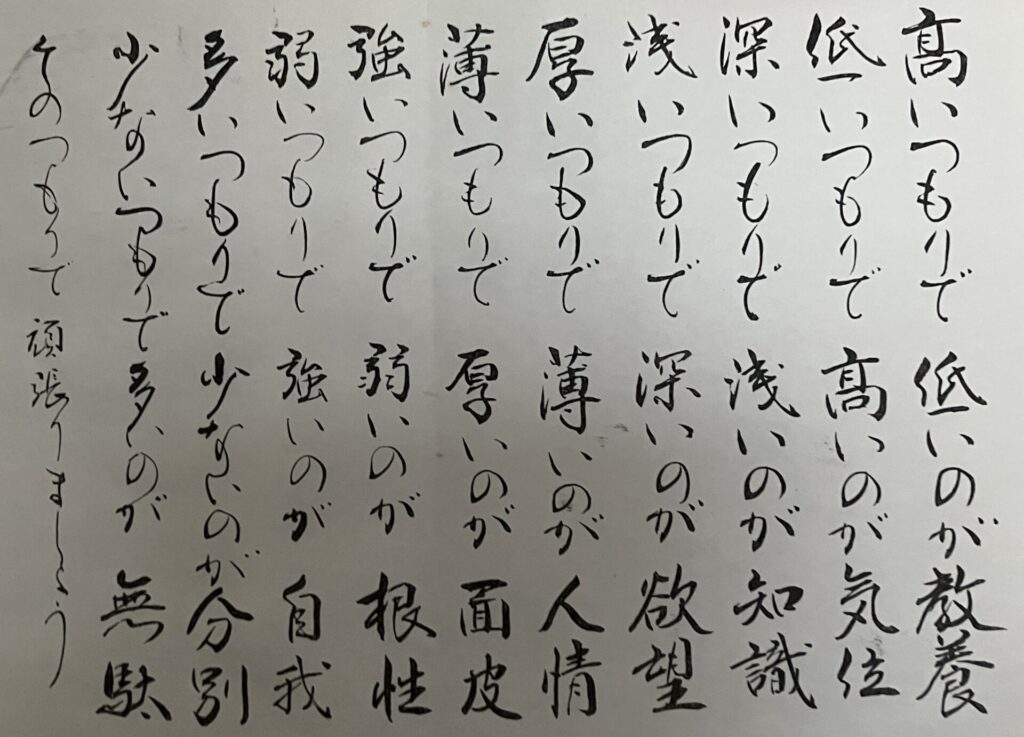 高いつもりで 低いのが教養
低いつもりで 高いのが気位
深いつもりで 浅いのが知識
浅いつもりで 深いのが欲望
厚いつもりで 薄いのが人情
薄いつもりで 厚いのが面皮
強いつもりで 弱いのが根性
弱いつもりで 強いのが自我
多いつもりで 少ないのが分別
少ないつもりで 多いのが無駄
そのつもりで 頑張りましょう